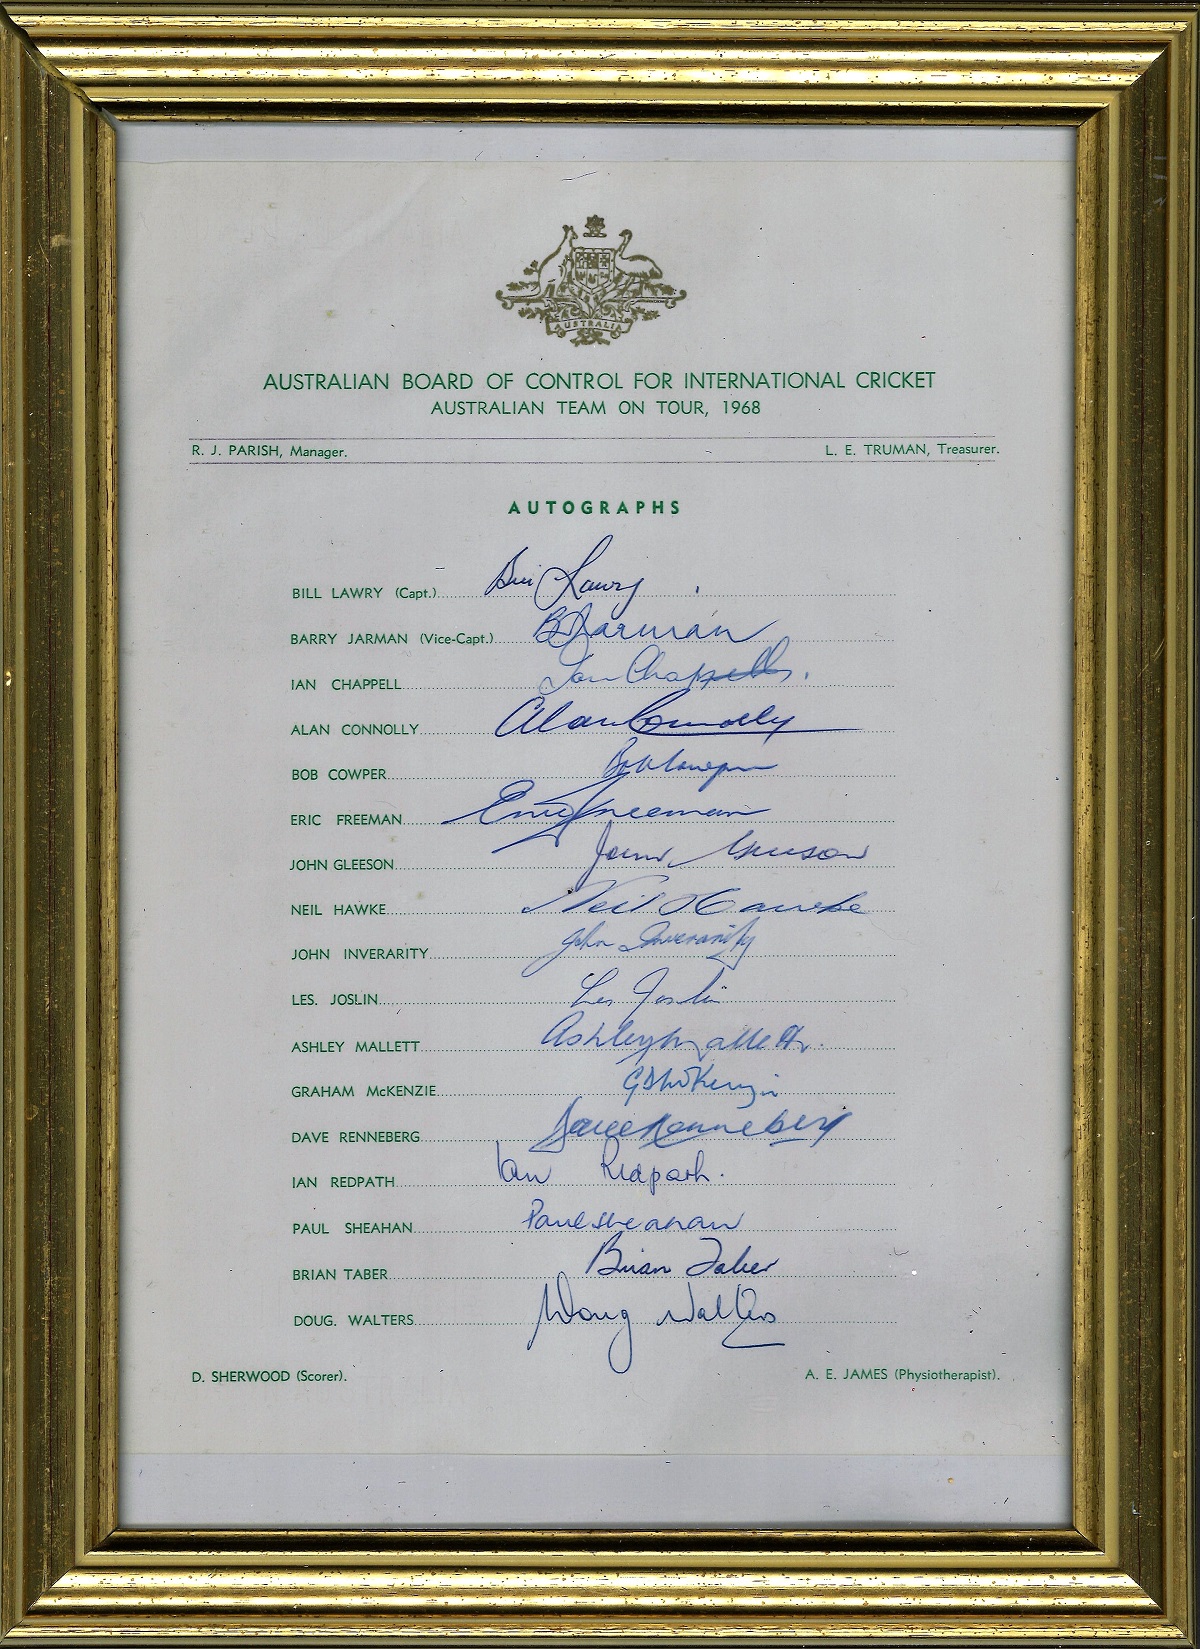 AUSTRALIA
AUSTRALIAN BOARD OF CONTROL FOR INTERNATIONAL CRICKET
AUSTRALIAN TEAM ON TOUR, 1968
R. J. PARISH, Manager. L. E. TRUMAN, Treasurer.
AUTOGRAPHS
BILL LAWRY (Capt.) Bill Lawry
BARRY JARMAN (Vice-Capt.) B Jarman
IAN CHAPPELL Ian Chappell
ALAN CONNOLLY Alan Connolly
BOB COWPER Bob Cowper
ERIC FREEMAN Eric Freeman
JOHN GLEESON John Gleeson
NEIL HAWKE Neil Hawke
JOHN INVERARITY John Inverarity
LES. JOSLIN Les Joslin
ASHLEY MALLETT Ashley Mallett
GRAHAM McKENZIE G D McKenzie
DAVE RENNEBERG Dave Renneberg
IAN REDPATH Ian Redpath.
PAUL SHEAHAN Paul Sheahan
BRIAN TABER Brian Taber
DOUG. WALTERS Doug Walters
D. SHERWOOD (Scorer). A. E. JAMES (Physiotherapist).